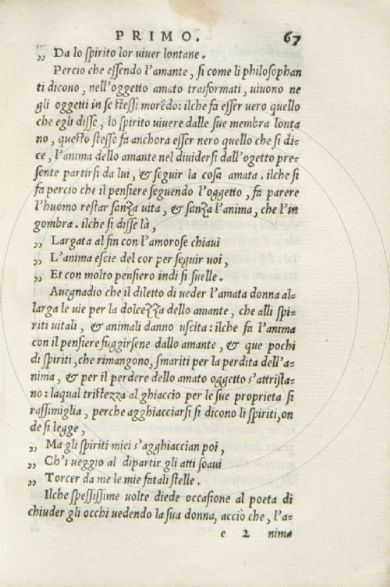 PRIMO. 67
„ Da lo spirito lor viuer lontane.
Percio che essendo l'amante, si come li philosophan
ti dicono, nell'oggetto amato trasformati, uiuono ne
gli oggetti in se stessi morēdo: ilche fa esser uero quello
che egli disse, lo spirito uiuere dalle sue membra lonta
no, questo stesso fa anchora esser nero quello che si di-
ce, l'anima dello amante nel diuidersi dall'ogetto pre-
sente partirsi da lui, & seguir la cosa amata. ilche si
fa percio che il pensiere seguendo l'oggetto, fa parere
l'huomo restar sanza uita, & sanza l'anima, che l'in
gombra. ilche si disse là,
„ Largata al fin con l'amorose chiaui
„ L'anima escie del cor per seguir uoi,
„ Et con molto pensiero indi si suelle.
Auegnadio che il diletto di ueder l'amata donna al-
larga le uie per la dolcezza dello amante, che alli spi-
riti uitali, & animali danno uscita: ilche fa l'anima
con il pensiere fuggirsene dallo amante, & que pochi
di spiriti, che rimangono, smariti per la perdita dell'a-
nima, & per il perdere dello amato oggetto s'attrista-
no: laqual tristezza al ghiaccio per le sue proprieta si
rassimiglia, perche agghiacciarsi si dicono li spiriti, on
de si legge,
„ Ma gli spiriti miei s'agghiaccian poi,
„ Ch'i ueggio al dipartir gli atti soaui
„ Torcer da me le mie fatali stelle.
Ilche spessissime uolte diede occasione al poeta di
chiuder gli occhi uedendo la sua donna, acciò che, l'a-
e 2 nima